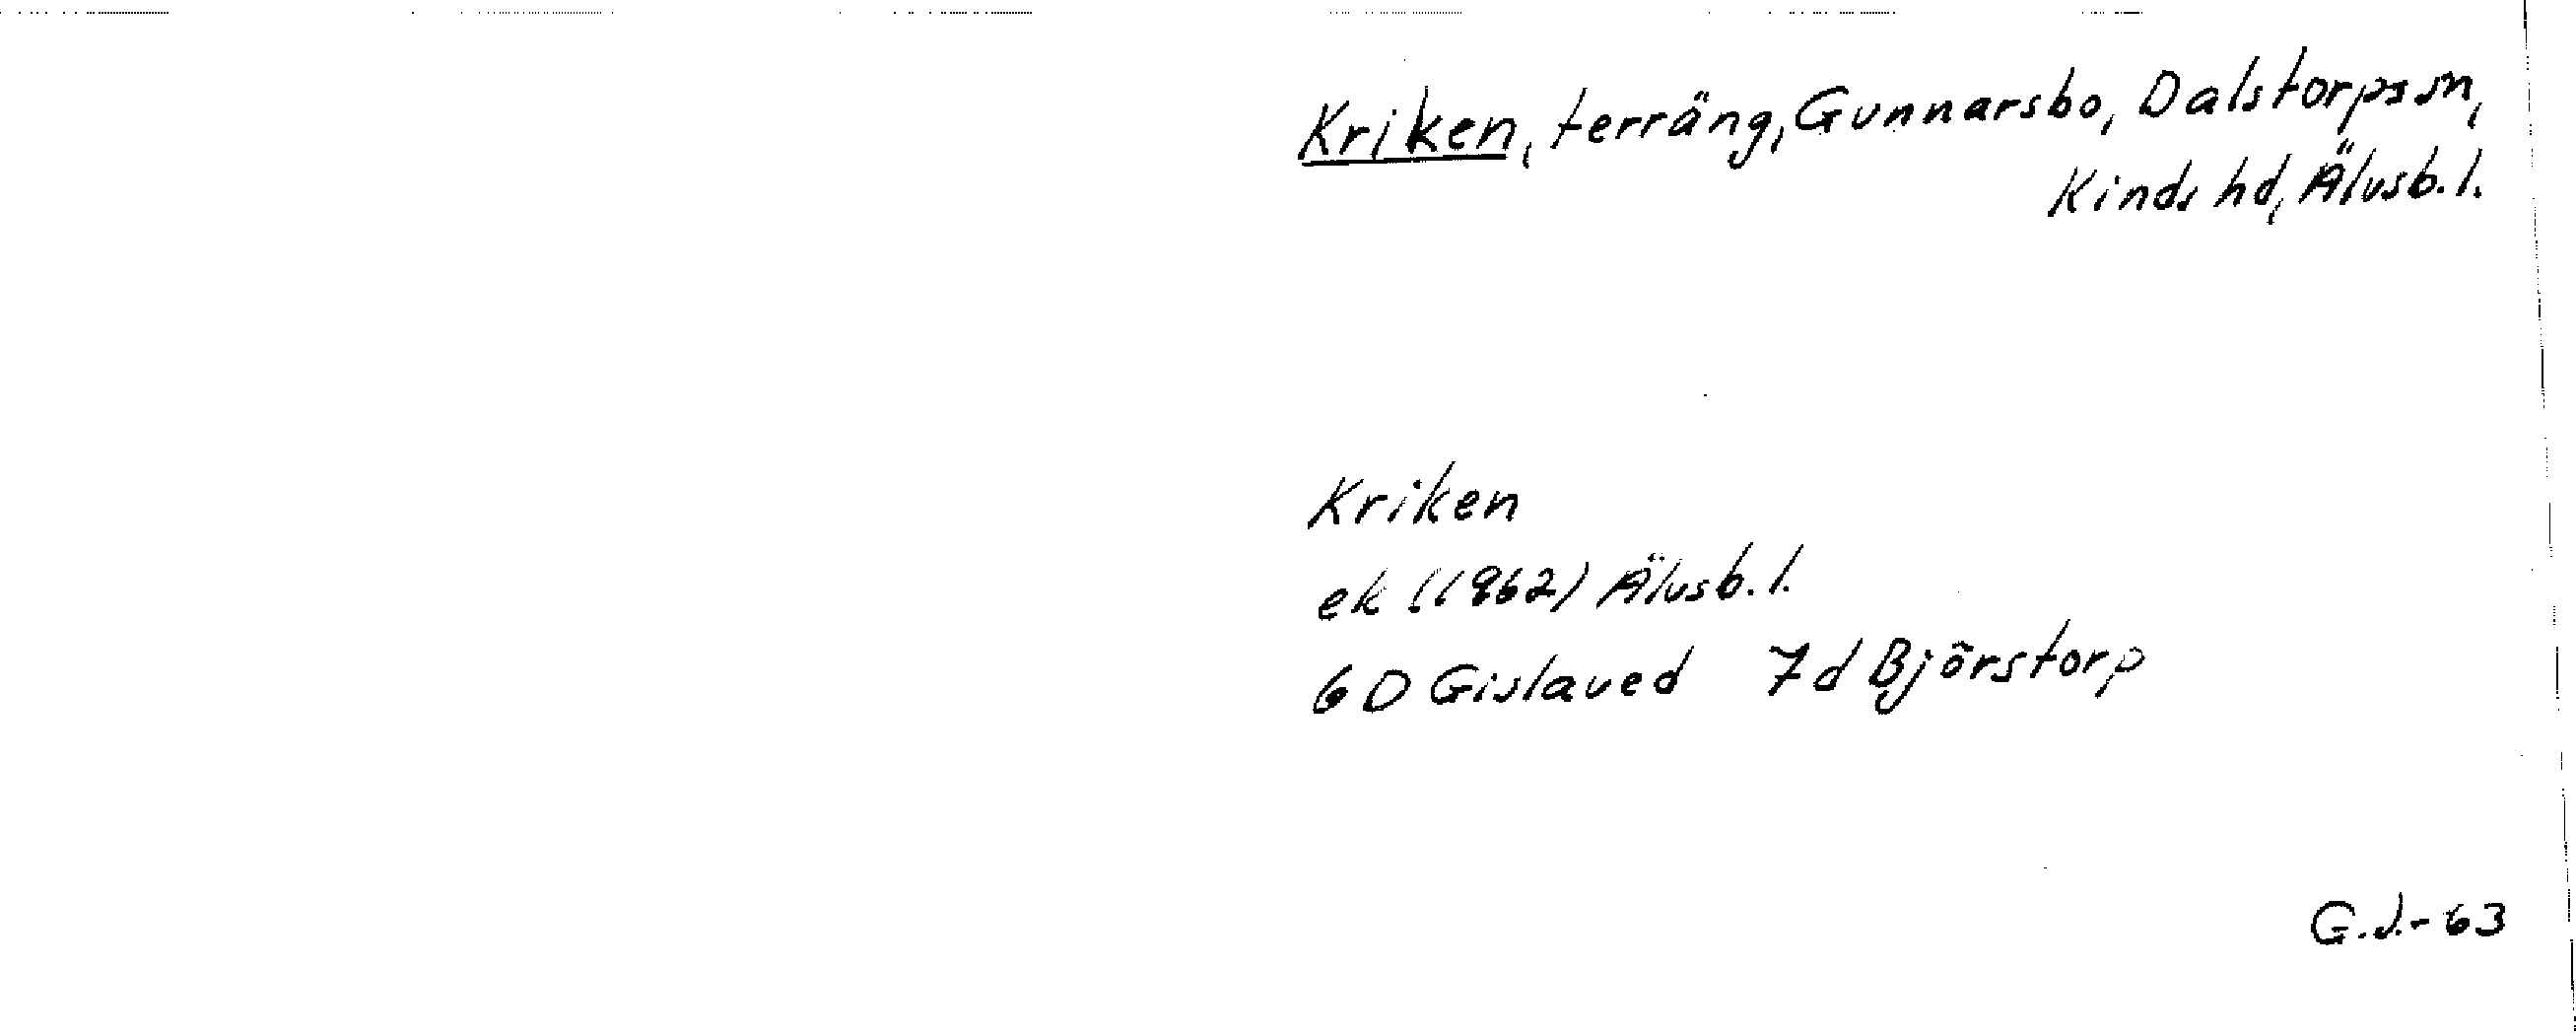 Kriken, terräng, Gunnarsbo, Dalstorps sn,
Kinds hd, Älvsb. l.
Kriken
ek (1962) Älvsb. l.
6D Gislaved 7d Björstorp
G.J.-63